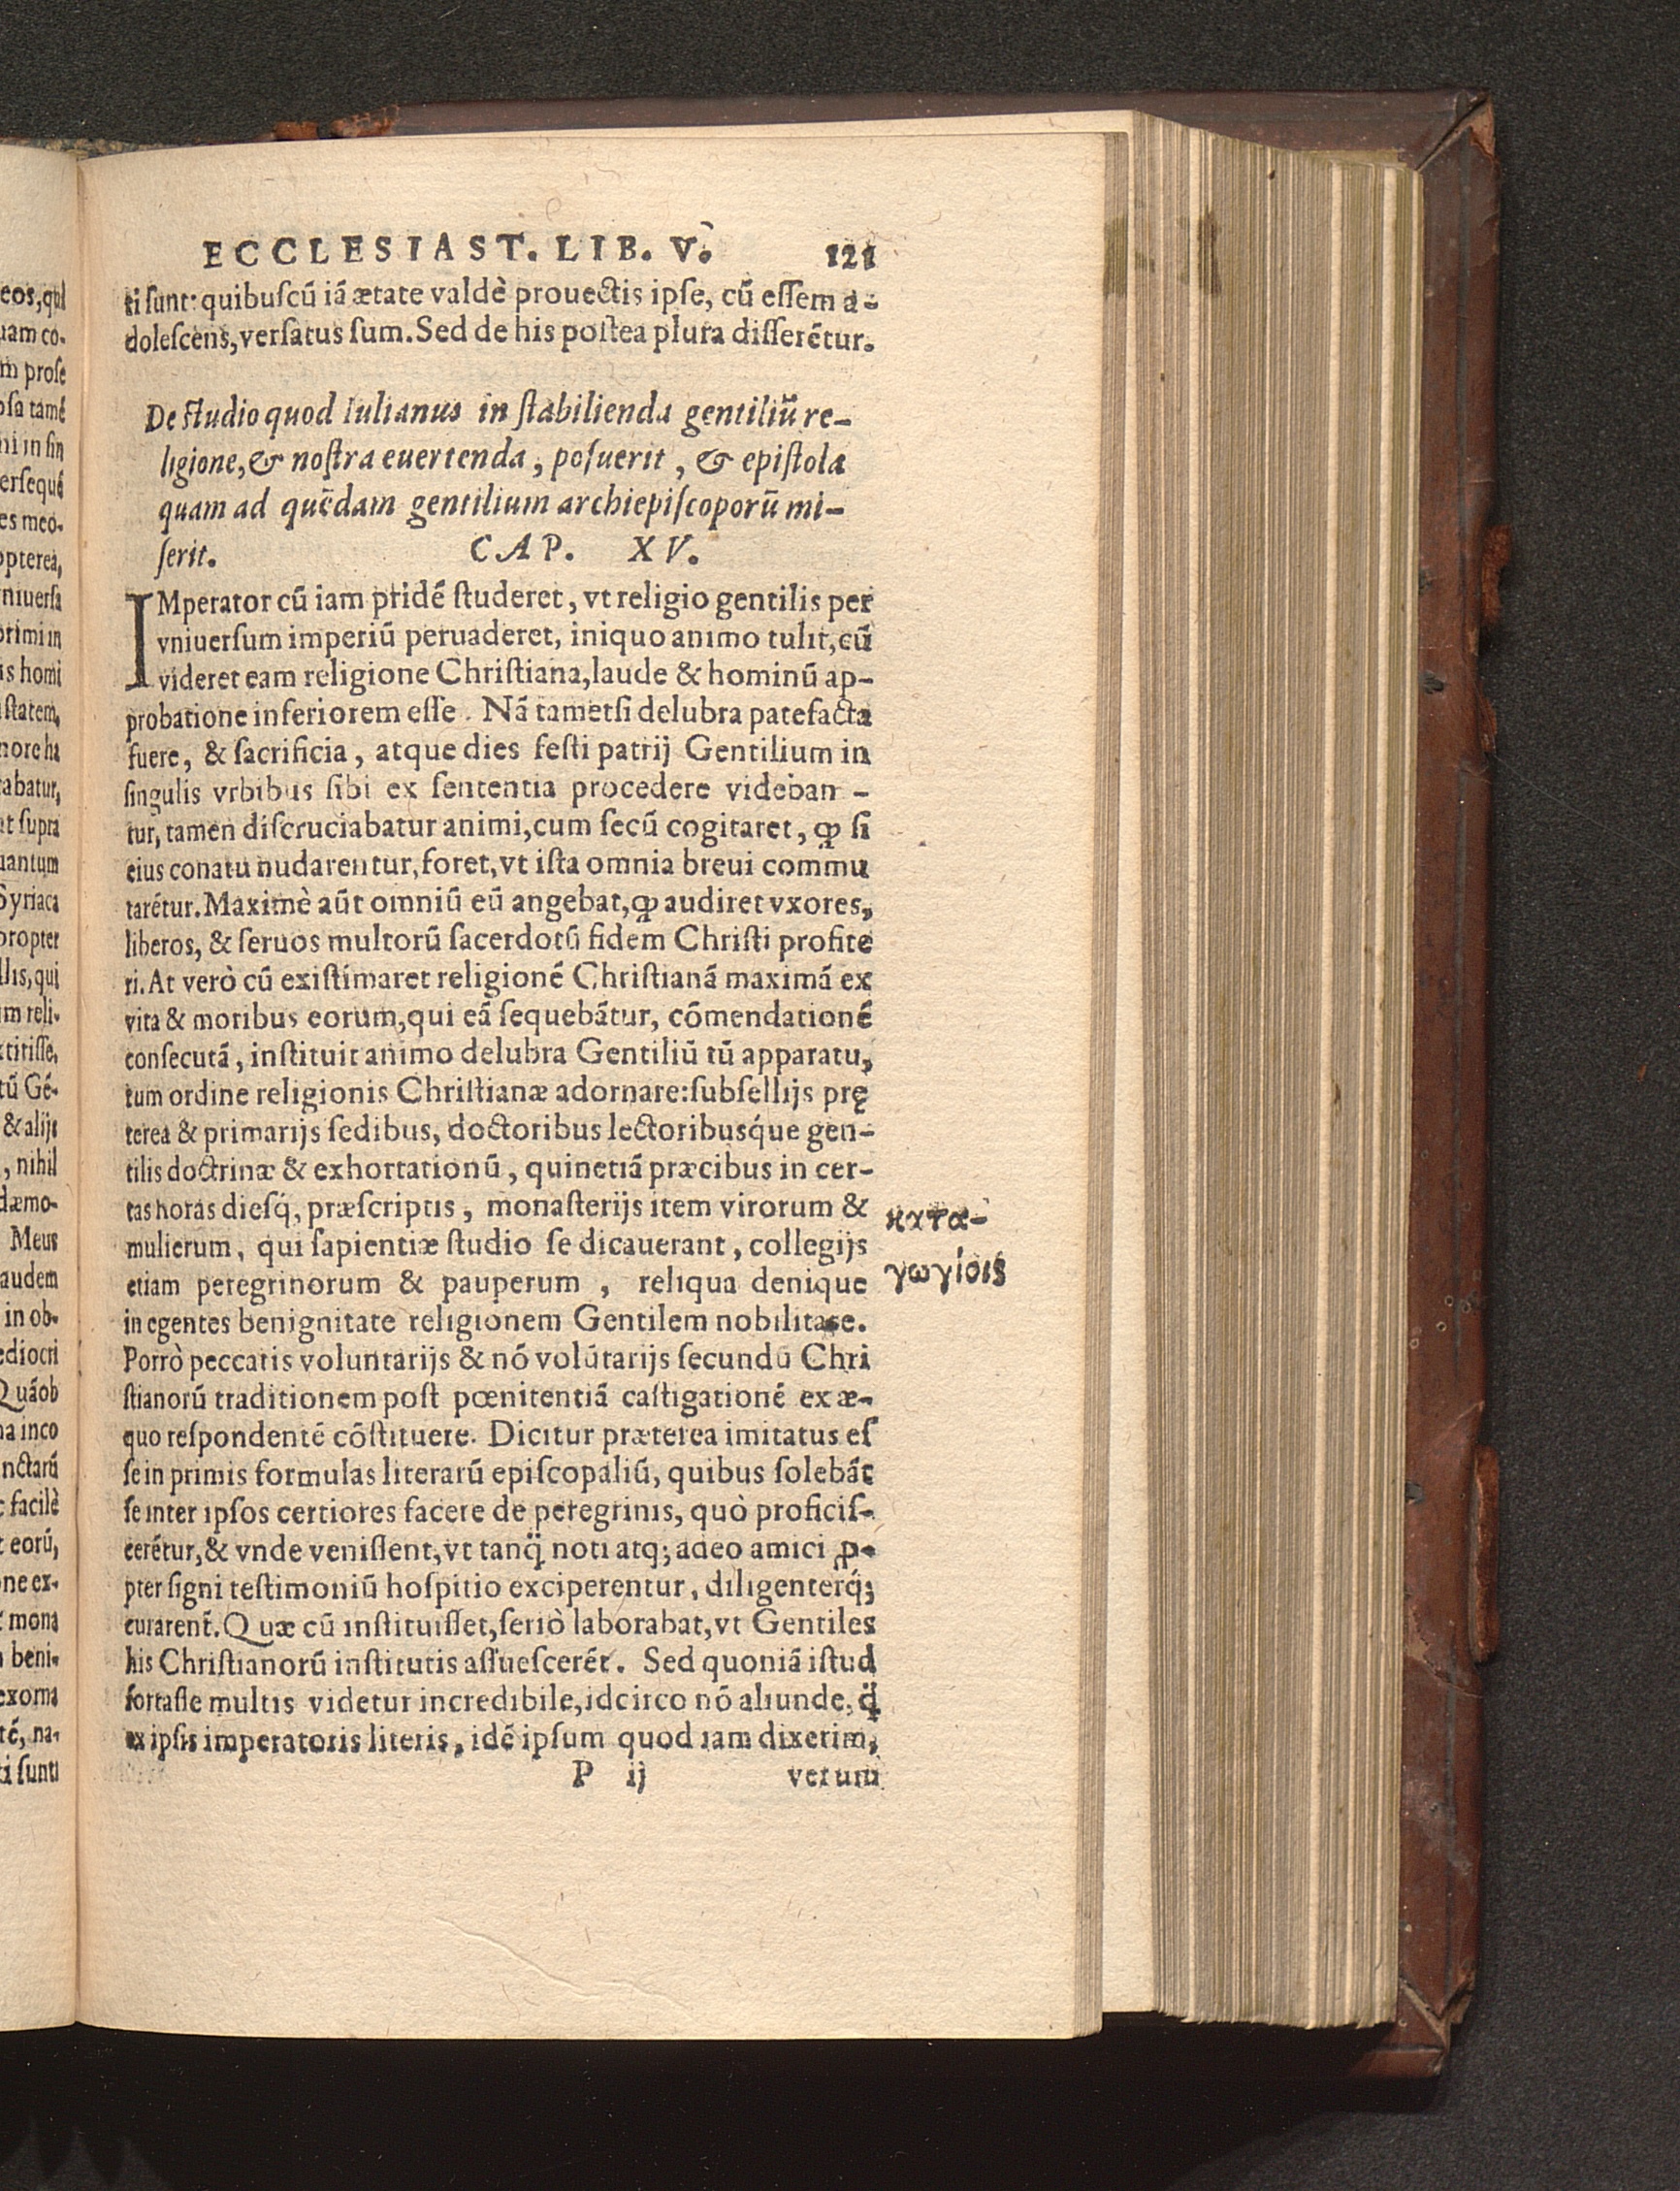 ECCLESIAST. LIB. V. 121
ti sunt: quibuscū iā ætate valdè prouectis ipse, cū essem a-
dolescens, versatus sum. Sed de his postea plura disserētur.
De studio quod Iulianus in stabilienda gentiliū re-
ligione, & nostra euertenda, posuerit, & epistola
quam ad quēdam gentilium archiepiscoporū mi-
serit. CAP. XV.
IMperator cū iam pridē studeret, vt religio gentilis per
vniuersum imperiū peruaderet, iniquo animo tulit, cū
videret eam religione Christiana, laude & hominū ap-
probatione inferiorem esse. Nā tametsi delubra patefacta
fuere, & sacrificia, atque dies festi patrij Gentilium in
singulis vrbibus sibi ex sententia procedere videban-
tur, tamen discruciabatur animi, cum secū cogitaret, ꝙ si
eius conatu nudarentur, foret, vt ista omnia breui commu
tarētur. Maximè aūt omniū eū angebat, ꝙ audiret vxores,
liberos, & seruos multorū sacerdotū fidem Christi profite
ri. At verò cū existimaret religionē Christianā maximā ex
vita & moribus eorum, qui eā sequebātur, cōmendationē
consecutā, instituit animo delubra Gentiliū tū apparatu,
tum ordine religionis Christianæ adornare: subsellijs prę
terea & primarijs sedibus, doctoribus lectoribusq́ue gen-
tilis doctrinæ & exhortationū, quinetiā præcibus in cer-
tas horas diesq́, præscriptis, monasterijs item virorum &
mulierum, qui sapientiæ studio se dicauerant, collegijs
etiam peregrinorum & pauperum, reliqua denique
in egentes benignitate religionem Gentilem nobilitare.
Porrò peccatis voluntarijs & nō volūtarijs secundū Chri
stianorū traditionem post pœnitentiā castigationē ex æ-
quo respondentē cōstituere. Dicitur præterea imitatus es
se in primis formulas literarū episcopaliū, quibus solebāt
se inter ipsos certiores facere de peregrinis, quò proficis-
cerētur, & vnde venissent, vt tanq̄ noti atq; adeo amici ꝓ-
pter signi testimoniū hospitio exciperentur, diligenterq́;
curarent̃. Quæ cū instituisset, seriò laborabat, vt Gentiles
his Christianorū institutis assuescerēt. Sed quoniā istud
fortasse multis videtur incredibile, idcirco nō aliunde, q̄
ex ipsis imperatoris literis, idē ipsum quod iam dixerim,
P ij verum
κατα-
γωγίοις